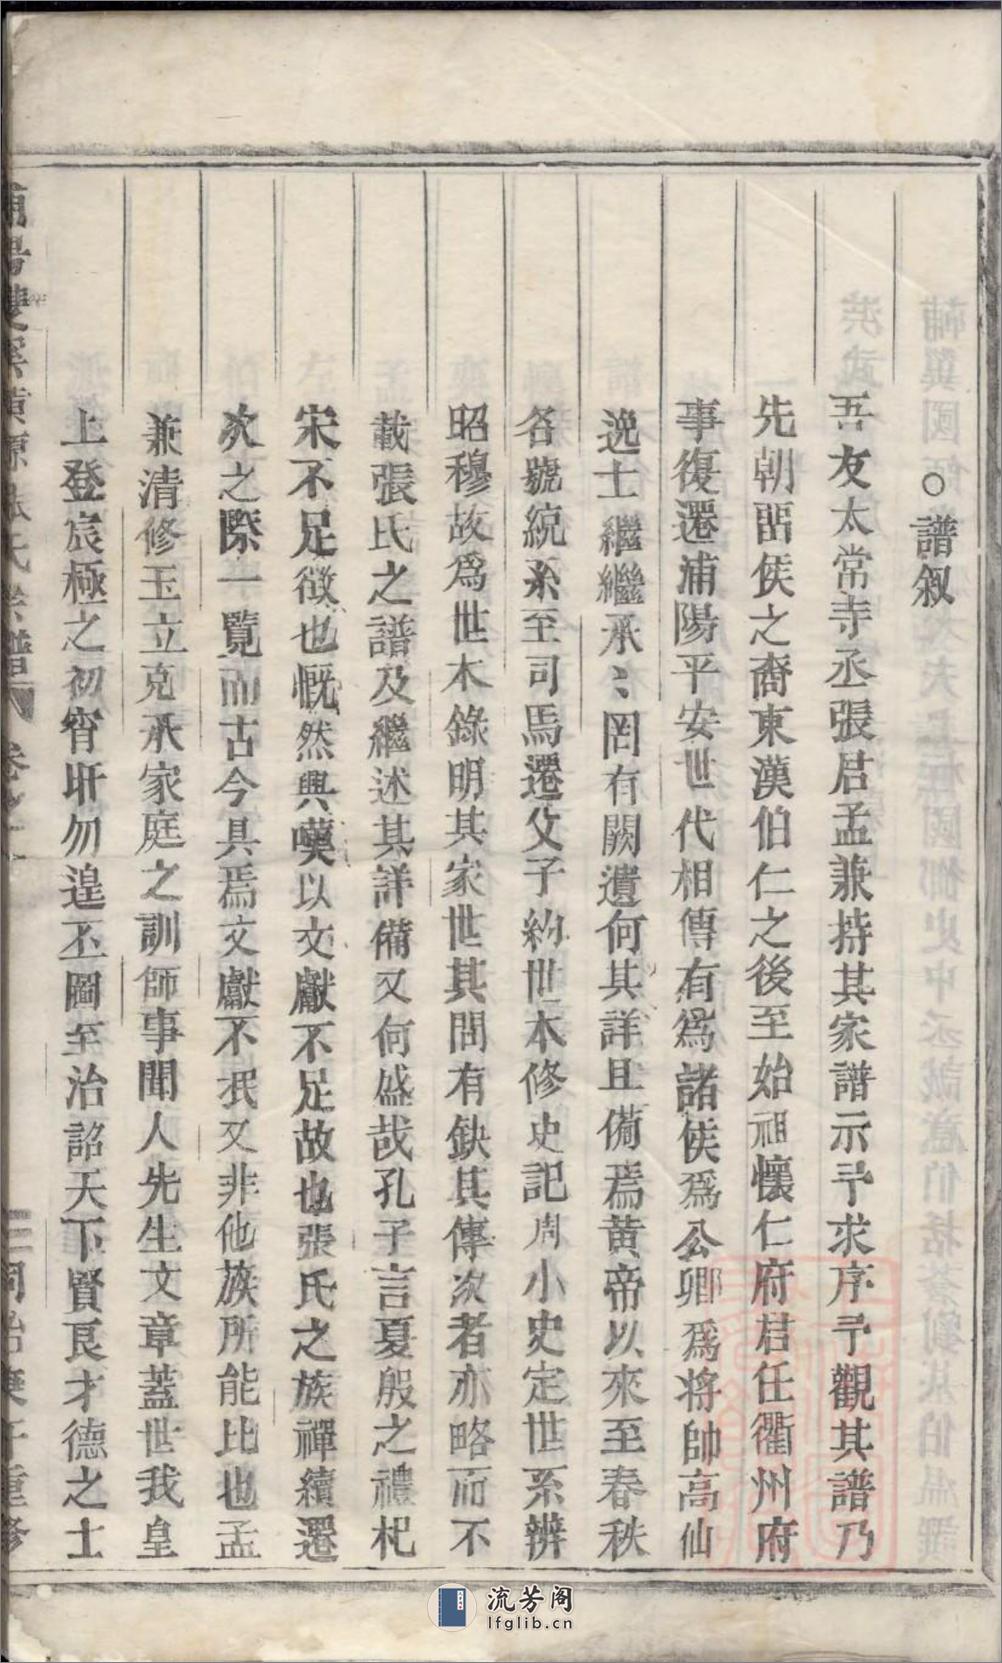 ○譜叙
吾友太常寺丞張君孟兼持其家譜示予求序予觀其譜乃
先朝畱侯之裔東漢伯仁之後至始祖懷仁府君任衢州府
事復遷浦陽平安世代相傳有爲諸侯爲公卿爲將帥高仙
逸士繼繼承〻罔有闕遺何其詳且備焉黄帝以來至春秩
各號統系至司馬遷父子約世本修史記周小史定世系辨
昭穆故爲世木錄明其家世其間有缺其傳次者亦略而不
載張氏之譜及繼述其詳備又何盛哉孔子言夏殷之禮杞
宋不足徴也慨然興嘆以文獻不足故也張氏之族禪續遷
次之際一覽而古今具焉文獻不泯又非他族所能比也孟
兼清修玉立克承家庭之訓師事聞人先生文章蓋世我皇
上登宸極之初宵旰勿遑丕圖至治詔天下賢良才德之士
浦陽雙溪 張氏宗譜 卷之 同治庚午重修
流芳阁
lfglib.cn